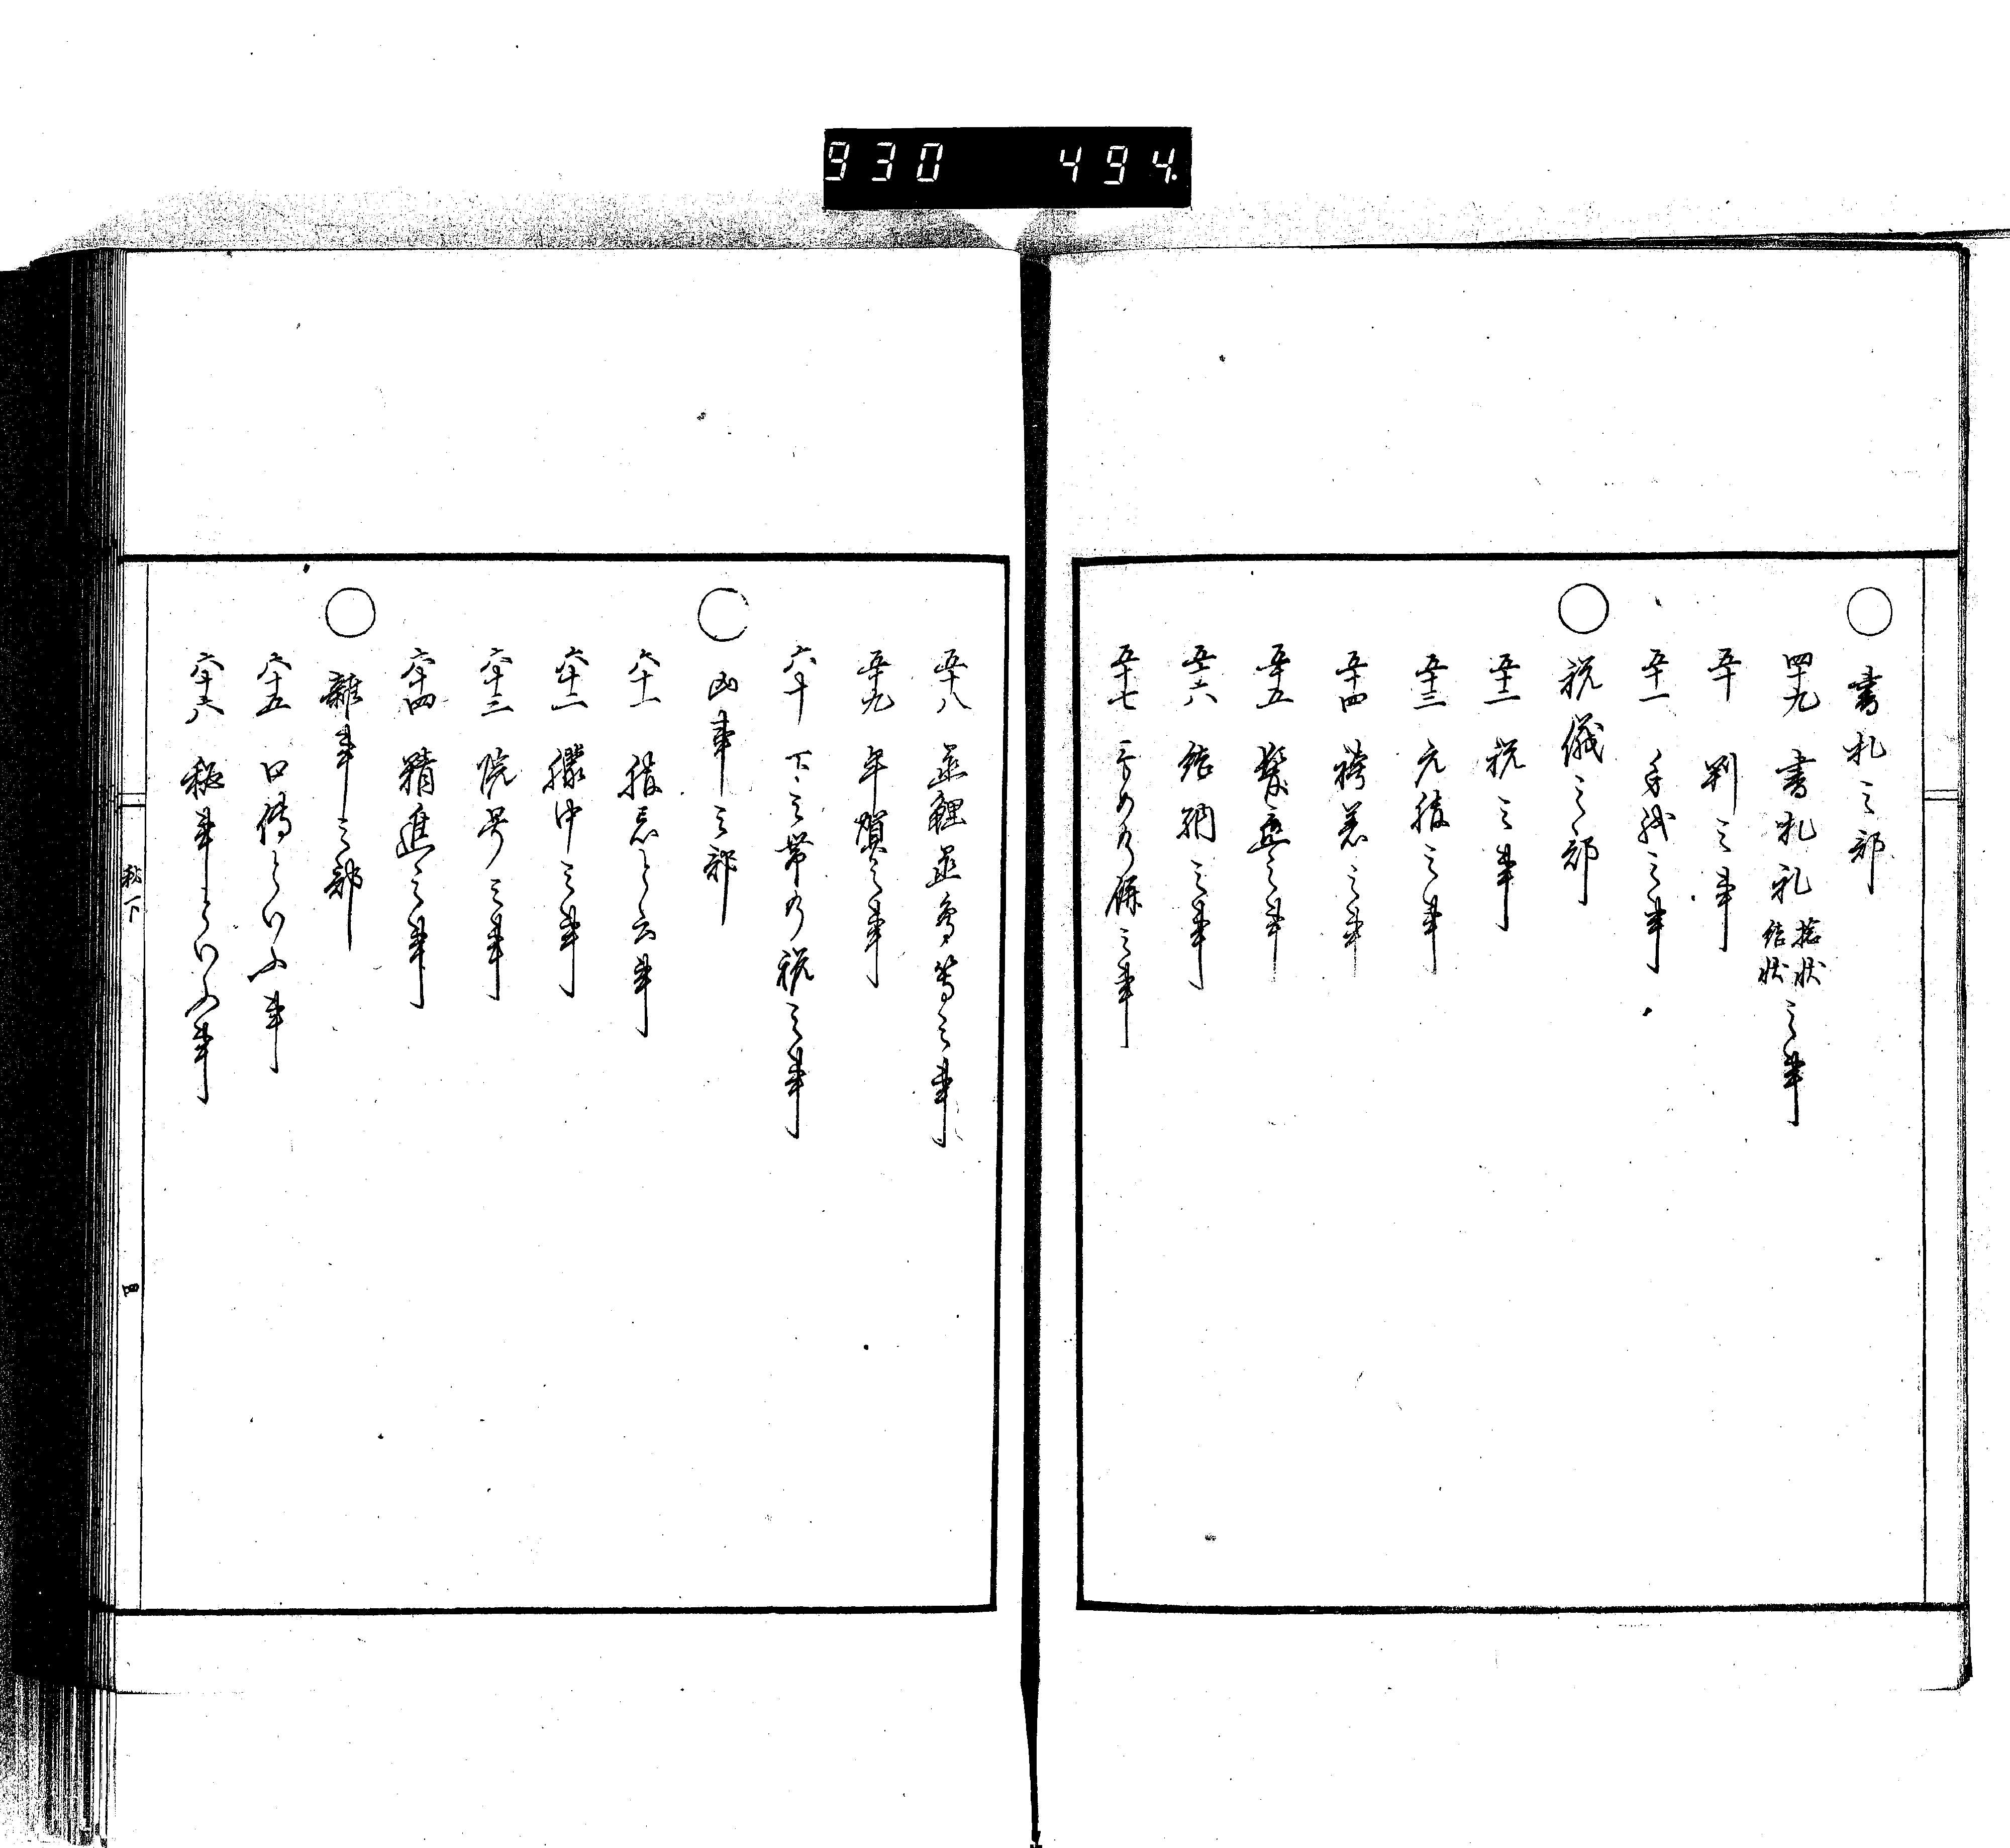 930 494.
○ 書札之部
四十九 書札礼 捻状 結状 之事
五十 判之事
五十一 手跡之事
○ 祝儀之部
五十二 祝之事
五十三 元服之事
五十四 袴着之事
五十五 之事
五十六 結納之事
五十七 之事
五十八 等之事
五十九 年賀之事
六十 下之帯の祝之事
○ 凶事之部
六十一 服忌と云事
六十二 朦中之事
六十三 院号之事
六十四 精進之事
○ 雑事之部
六十五 口傳といふ事
六十六 秘事といふ事
秋下
四